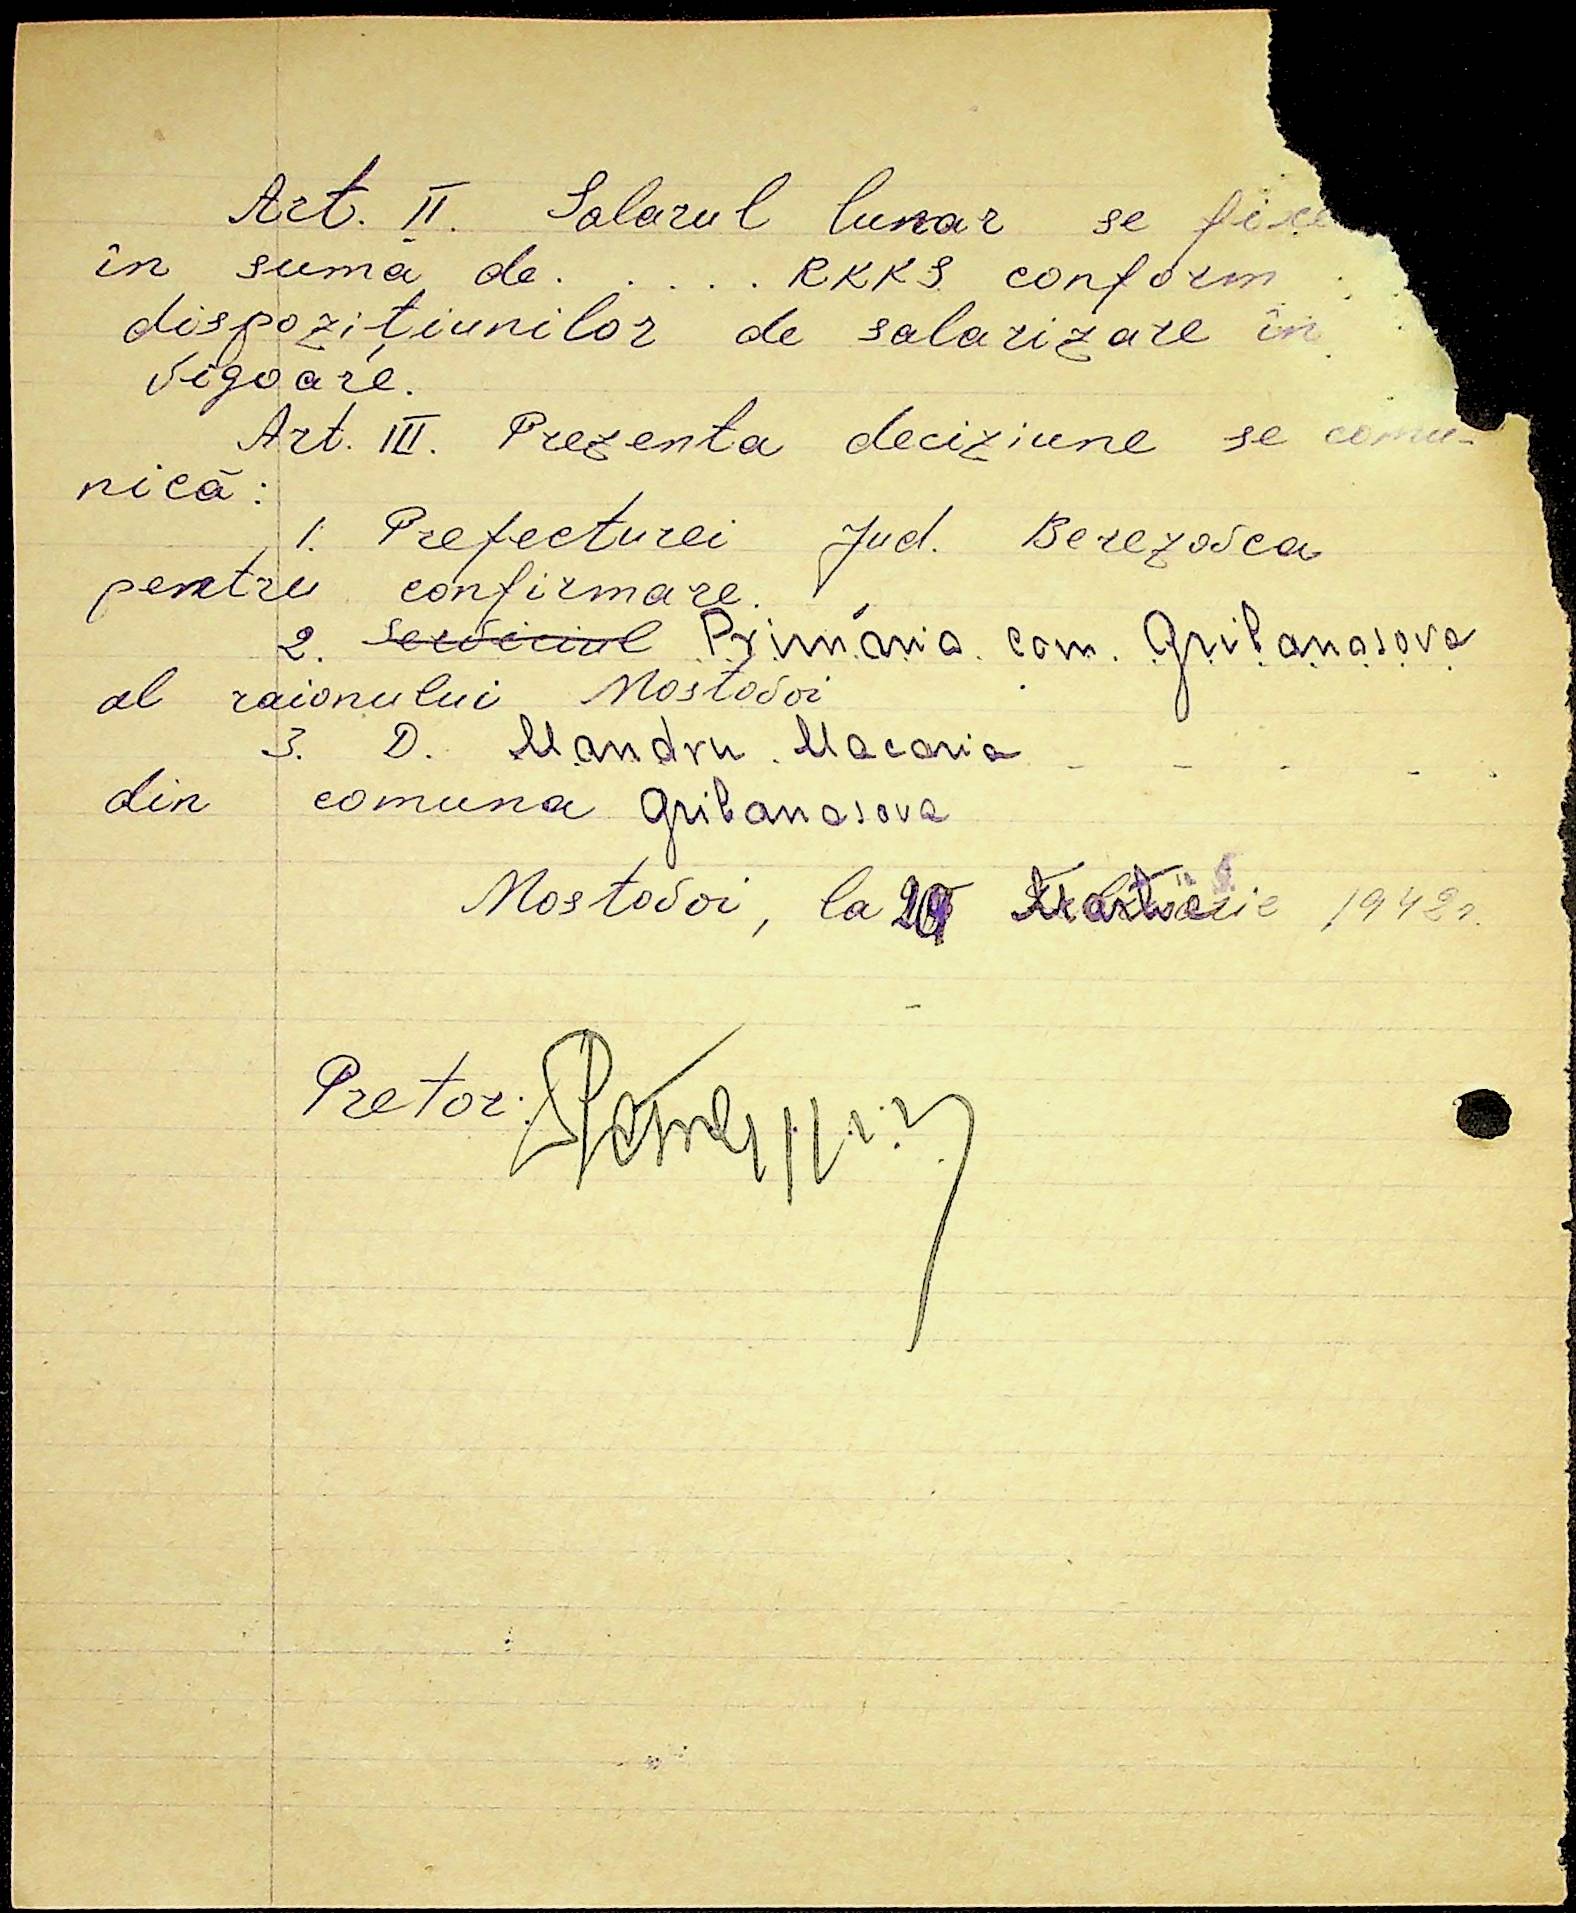 Art. II. Salarul lunar se fixe
în sumă de. . . . . RKKS conform
dispozițiunilor de salarizare în
vigoare.
Art. III. Prezenta deciziune se comu-
nică:
1. Prefecturei Jud. Berezovca
pentru confirmare.
2. Serviciul Primăria com. Gribanasova
al raionului Mostovoi
3. D. Mandru Macaria
din comuna Gribanasova
Mostovoi, la 1942 r.
Pretor: